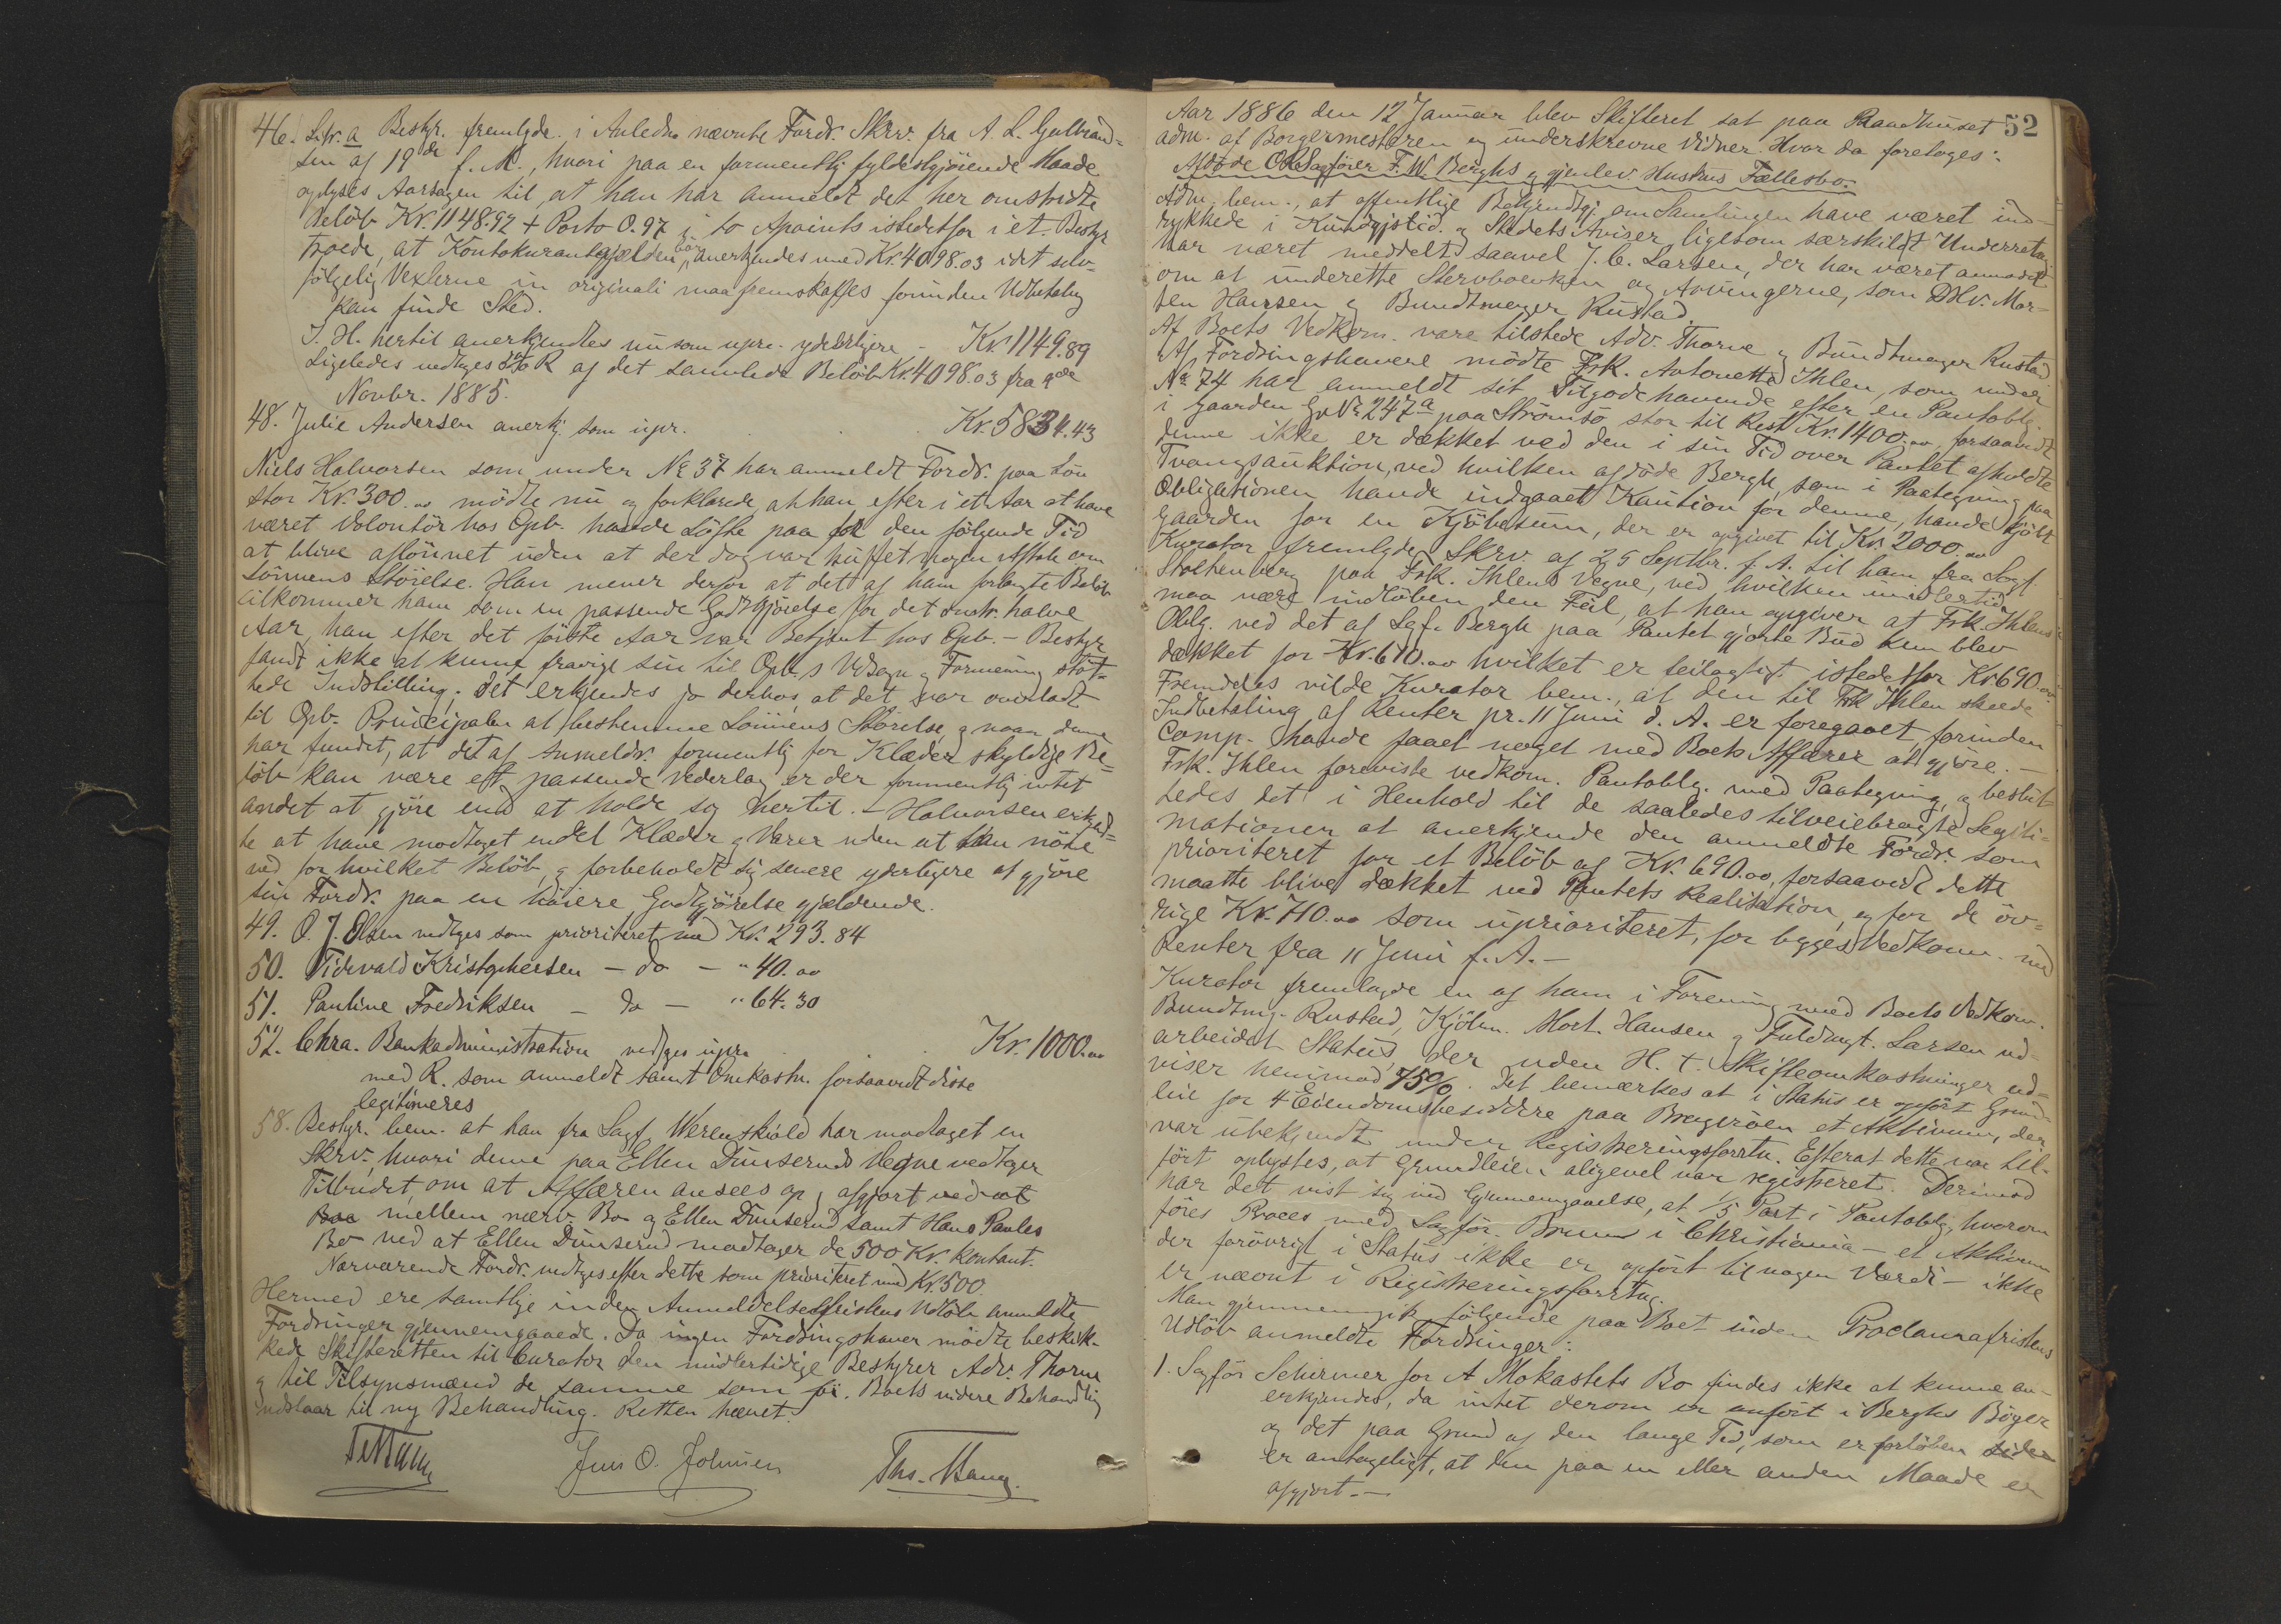 46. Litr. a Bestyr. fremlgde. i Anledn. nævnte Fordr. Skrv. fra A. L. Gulbrand-
sen af 19de f. M., hvori paa en formentlig fyldestgjörende Maade
oplyses Aarsagen til, at han har anmeldt det her omstridte
Belöb Kr. 1148.92 + Porto 0.97 i to Apoints istedetfor i et. Bestyr
troede, at Kontokurantgjælden bör anerkjendes med Kr. 4098.03 idet selv-
fölgelig Vexlerne in originali maa fremskaffes forinden Udbetaling
kan finde Sted.
I. H. hertil anerkjendtes nu som upr. yderligere - Kr. 1149.89
Ligeledes vedtoges R af det samlede Belöb Kr. 4098.03 fra 9de
Novbr. 1885.
48. Julie Andersen anerkj. som upr. Kr. 5834.43
Niels Halvorsen som under No 37 har anmeldt Fordr. paa Lön
stor Kr. 300.00 mödte nu og forklarede, at han efter i et Aar at have
været Volontör hos Opb. havde Löfte paa for den fölgende Tid
at blive aflönnet uden at der dog var truffet nogen Aftale om
Lönnens Störelse. Han mener derfor at det af ham forlangte Belöb
tilkommer ham som en passende Godtgjörelse for det halve
Aar, han efter det förste Aar var Betjent hos Opb. - Bestyr
fandt ikke at kunne fravige sin til Opb.s Udsagn og Formening støt-
tede Indstilling; det erkjendes jo derhos, at det var overladt
til Opb. Principalen at bestemme Lönnens Störelse, og naar denne
har fundet, at det af Anmeldr. formentlig for Klæder skyldige Be-
löb kan være et passende Vederlag er der formentlig intet
andet at gjöre end at holde sig hertil. - Halvorsen erkjend-
te at have modtaget endel Klæder og Varer uden at kan nöie
ved for hvilket Belöb, og forbeholdt sig senere yderligere at gjöre
sin Fordr. paa en höiere Godtgjörelse gjældende.
49. O. J. Olsen vedtges som prioriteret med Kr. 293.84
50. Tidevald Kristophersen - do - " 40.00
51. Pauline Fredriksen - do - " 64.30
52. Chra. Bankadministration vedtges upr. Kr. 1000.00
med R. som anmeldt samt Omkostn. forsaavidt disse
legitimeres
58. Bestyr. bem. at han fra Sagf. Werenskiold har modtaget en
Skrv., hvori denne paa Ellen Dunseruds Vegne vedtager
Tilbudet om at Affæren ansees op og afgjort ved at
mellem nærv. Bo og Ellen Dunserud samt Hans Paules
Bo ved at Ellen Dunserud modtager de 500 Kr. kontant.
Nærværende Fordr. vedtges efter dette som prioriteret med Kr. 500
Hermed ere samtlige inden Anmeldelsesfristens Udlöb anmeldte
Fordringer gjennemgaaede. Da ingen Fordringshaver mödte beskik-
kede Skifteretten til Curator den midlertidige Bestyrer Adv. Thorne
og til Tilsynsmænd de samme som för. Boets videre Behandling
udstaar til ny Behandling. Retten hævet.
Jens O. Johnsen Ths. Haug.
52
Aar 1886 den 12 Januar blev Skifteret sat paa Raadhuset
adm. af Borgermesteren og underskrevne Vidner. Hvor da foretoges:
Afdöde O R Sagförer F. W. Berghs og gjenlev. Hustrus Fællesbo.
Adm. bem., at offentlige Bekjendtgj. om Samlingen have været ind-
rykkede i Kundgjstid. og Stedets Aviser, ligesom særskildt Underretng
har været meddelt saavel J. C. Larsen, der har været anmodet
om at underrette Stervboenken og Arvingerne, som DHr. Mor-
ten Hansen og Bundtmager Rustad.
Af Boets Vedkom. vare tilstede Adv. Thorne og Bundtmager Rustad
Af Fordringshavere mödte Frk. Antonette Ihlen, som under
No 74 har anmeldt sit Tilgodehavende efter en Pantoblg.
i Gaarden Gr No 247a paa Strömsö stor til Rest Kr. 1400.00, forsaavidt
denne ikke er dækket ved den i sin Tid over Pantet afholdte
Tvangsauktion, ved hvilken afdöde Bergh, som i Paategning paa
Obligationen havde indgaaet Kaution for denne, havde kjöbt
Gaarden for en Kjöbesum, der er opgivet til Kr. 2000.00
Kurator fremlgde Skrv. af 25 Septbr. f. A. til ham fra Sagf.
Stoltenberg paa Frk. Ihlens Vegne, ved hvilken imidlertid
maa være indlöben den Feil, at han opgiver at Frk. Ihlens
Oblg. ved det af Sgf. Bergh paa Pantet gjorte Bud kun blev
dækket for Kr. 610.00 hvilket er feilagtigt istedetfor Kr. 690.00
Fremdeles vilde Kurator bem., at den til Frk Ihlen skeede
Indbetaling af Renter pr. 11 Juni d. A. er foregaaet, forinden
Comp. havde faaet noget med Boets Affærer at gjöre. -
Frk. Ihlen foreviste vedkom. Pantoblg. med Paategning, og beslut-
tedes det i Henhold til de saaledes tilveiebragte Legiti-
mationer at anerkjende den anmeldte Fordr. som
prioriteret for et Belöb af Kr. 690.00, forsaavidt dette
maatte blive dækket ved Pantets Realisation, og for de öv-
rige Kr. 710.00 som uprioriteret, for begges Vedkom. med
Renter fra 11 Juni f. A. -
Kurator fremlagde en af ham i Forening med Boets Vedkom.
Bundtmg. Rustad, Kjöbm. Mort. Hansen og Fuldmgt. Larsen ud-
arbeidet Status der uden H. t. Skifteomkostninger ud-
viser henimod 75%. Det bemærkes at i Status er opfört Grund-
leie for 4 Eiendomsbesiddere paa Brageröen et Aktivum, der
var ubekjendt under Registreringsforrtn. Efterat dette var til-
fört oplystes, at Grundleien aligevel var registreret. Derimod
har det vist sig ved Gjennemgaaelse, at 1/5 Part i Pantoblg, hvorom
föres Proces med Sagför. Bruun i Christiania - et Aktivum
der forövrigt i Status ikke er opfört til nogen Værdi - ikke
er nævnt i Registreringsforrtng.
Man gjennemgik fölgende paa Boet inden Proclamafristens
Udlöb anmeldte Fordringer:
1. Sagför Schirmer for A Mokastets Bo findes ikke at kunne an-
erkjendes, da intet derom er anfört i Berghs Böger
og det paa Grund af den lange Tid, som er forlöben siden
er antageligt, at den paa en eller anden Maade er
afgjort. -